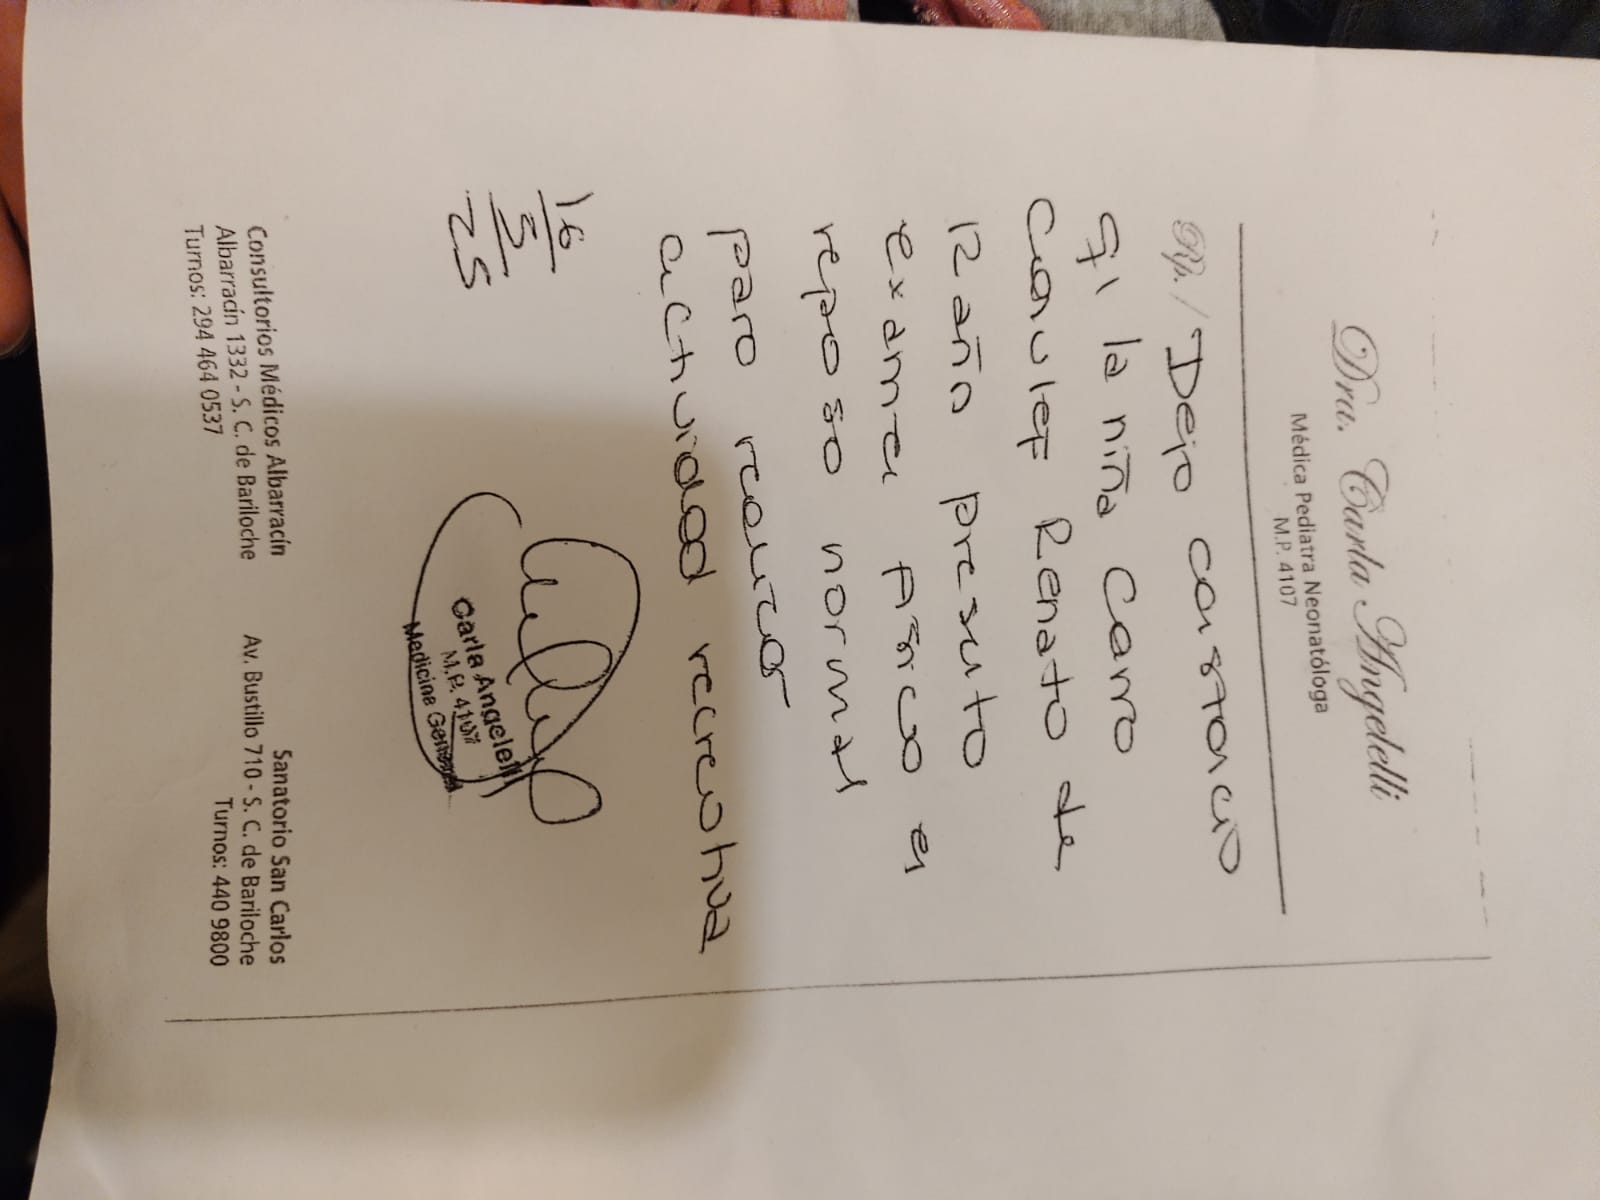 Dra. Carla Angelelli
Médica Pediatra Neonatóloga
M.P. 4107
Rp./ Dejo constancia
q' la niña Carro
Renato de
12 año presento
examen físico en
reposo normal
para realizar
actividad recreativa
16
5
25
Carla Angelelli
M.P. 4107
Medicina General
Consultorios Médicos Albarracín
Albarracín 1332 - S. C. de Bariloche
Turnos: 294 464 0537
Sanatorio San Carlos
Av. Bustillo 710 - S. C. de Bariloche
Turnos: 440 9800